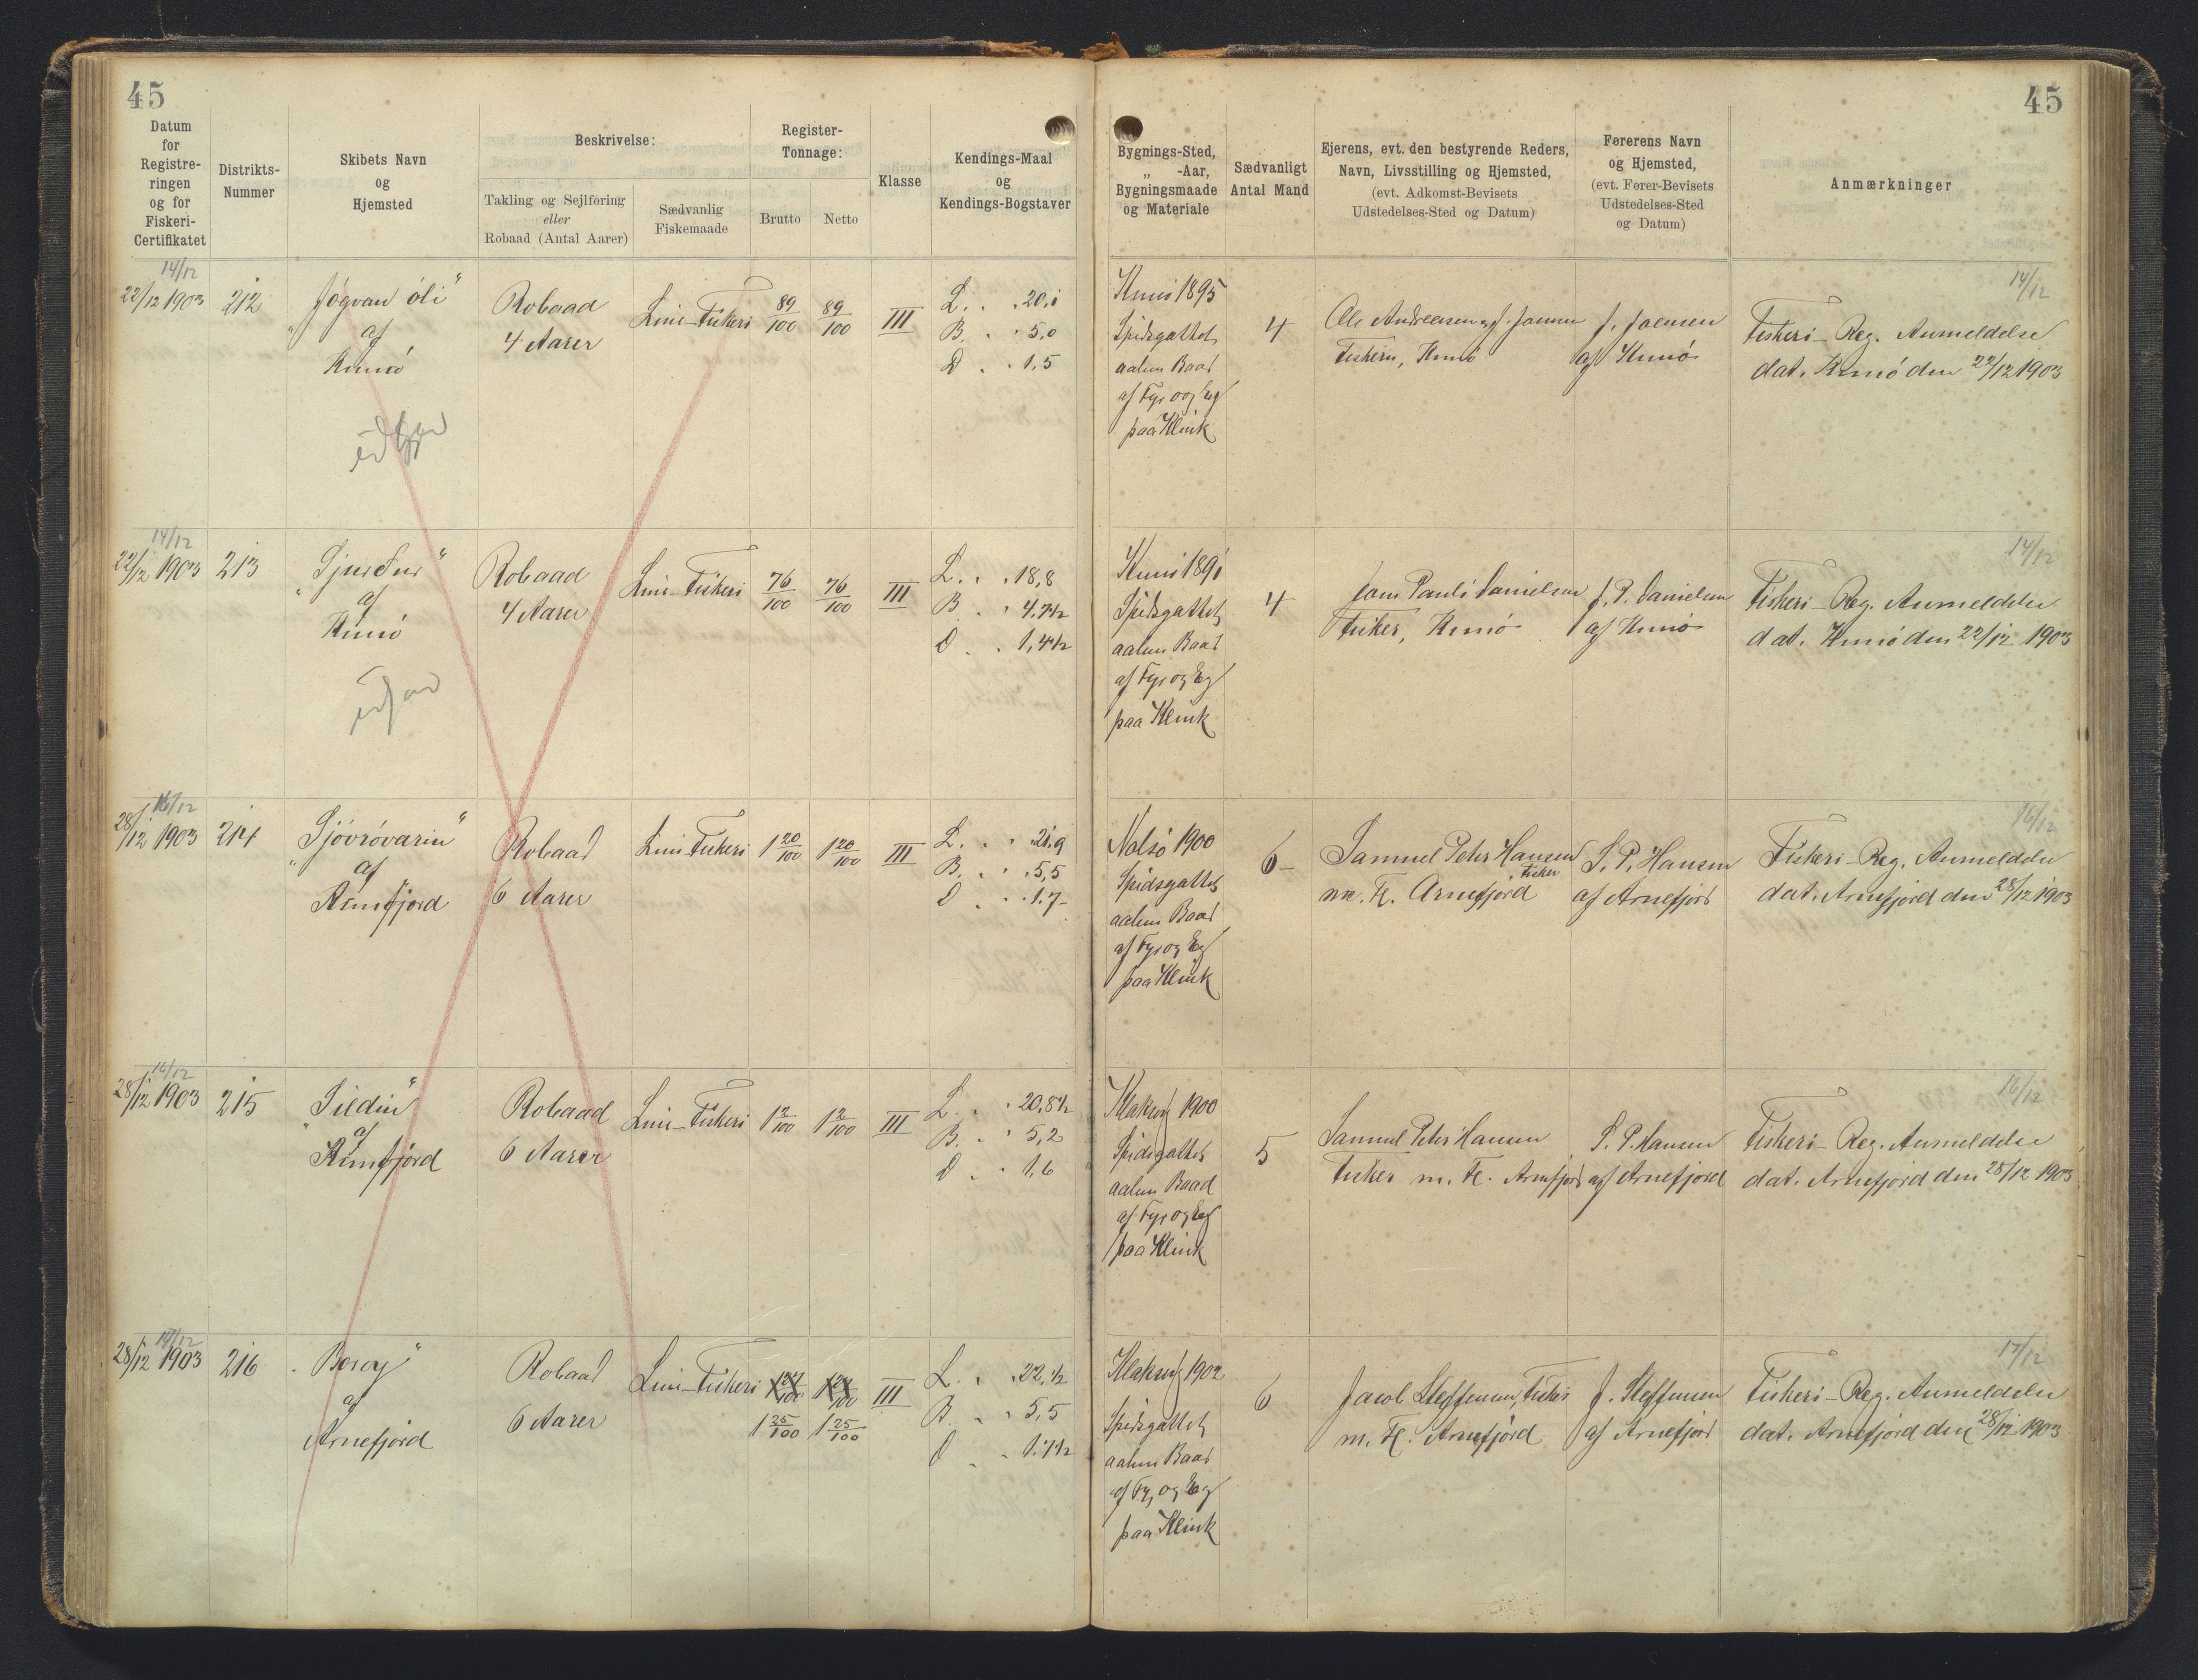 45
45
Datum
for
Registre-
ringen
og for
Fiskeri-
Certifikatet
Distrikts-
Nummer
Skibets Navn
og
Hjemsted
Beskrivelse:
Takling og Sejlføring
eller
Robaad (Antal Aarer)
Sædvanlig
Fiskemaade
Register-
Tonnage:
Brutto
Netto
Klasse
Kendings-Maal
og
Kendings-Bogstaver
Bygnings-Sted,
„ -Aar,
Bygningsmaade
og Materiale
Sædvanligt
Antal Mand
Ejerens, evt. den bestyrende Reders,
Navn, Livsstilling og Hjemsted,
(evt. Adkomst-Bevisets
Udstedelses-Sted og Datum)
Førerens Navn
og Hjemsted,
(evt. Fører-Bevisets
Udstedelses-Sted
og Datum)
Anmærkninger
14/12
22/12 1903
212
„Jógvan óli“
af
Kunø
Robaad
4 Aarer
Line-Fiskeri
89/100
89/100
III
L. . . 20,1
B. . . 5,0
D . . 1,5
Kunø 1895
Spidsgattet
aaben Baad
af Fyr og Eg
paa Klink
4
Ole Andreasen og J. Joensen
Fiskere, Kunø
J. Joensen
af Kunø
14/12
Fiskeri-Reg. Anmeldelse
dat. Kunø den 22/12 1903
udgaa
14/12
22/12 1903
213
„Sjurður“
af
Kunø
Robaad
4 Aarer
Line-Fiskeri
76/100
76/100
III
L. . . 18,8
B . . 4,7½
D . . 1,4½
Kunø 1891
Spidsgattet
aaben Baad
af Fyr og Eg
paa Klink
4
Joen Pauli Danielsen
Fisker, Kunø
J. P. Danielsen
af Kunø
14/12
Fiskeri-Reg. Anmeldelse
dat. Kunø den 22/12 1903
16/12
28/12 1903
214
„Sjóvróvarin“
af
Arnefjord
Robaad
6 Aarer
Line-Fiskeri
1 20/100
1 20/100
III
L. . . 21,9
B. . . 5,5
D . . 1.7-
Nolsø 1900
Spidsgattet
aaben Baad
af Fyr og Eg
paa Klink
6-
Samuel Peter Hansen
Fisker
m. Fl. Arnefjord
S. P. Hansen
af Arnefjord
16/12
Fiskeri-Reg. Anmeldelse
dat. Arnefjord den 28/12 1903
16/12
28/12 1903
215
„Sildin“
af
Arnefjord
Robaad
6 Aarer
Line-Fiskeri
1 2/100
1 2/100
III
L. . . 20,8½
B. . . 5,2
D . . 1,6
Klaksvig 1900
Spidsgattet
aaben Baad
af Fyr og Eg
paa Klink
5
Samuel Peter Hansen
Fisker m. Fl. Arnefjord
S. P. Hansen
af Arnefjord
16/12
Fiskeri-Reg. Anmeldelse
dat. Arnefjord den 28/12 1903
17/12
28/12 1903
216
„Boroy“
af
Arnefjord
Robaad
6 Aarer
Line-Fiskeri
1 25/100
1 25/100
III
L. . . 22,½
B. . . 5,5
D . . 1.7½
Klaksvig 1902
Spidsgattet
aaben Baad
af Fyr og Eg
paa Klink
6
Jacob Steffensen, Fisker
m. Fl. Arnefjord
J. Steffensen
af Arnefjord
17/12
Fiskeri-Reg. Anmeldelse
dat. Arnefjord den 28/12 1903